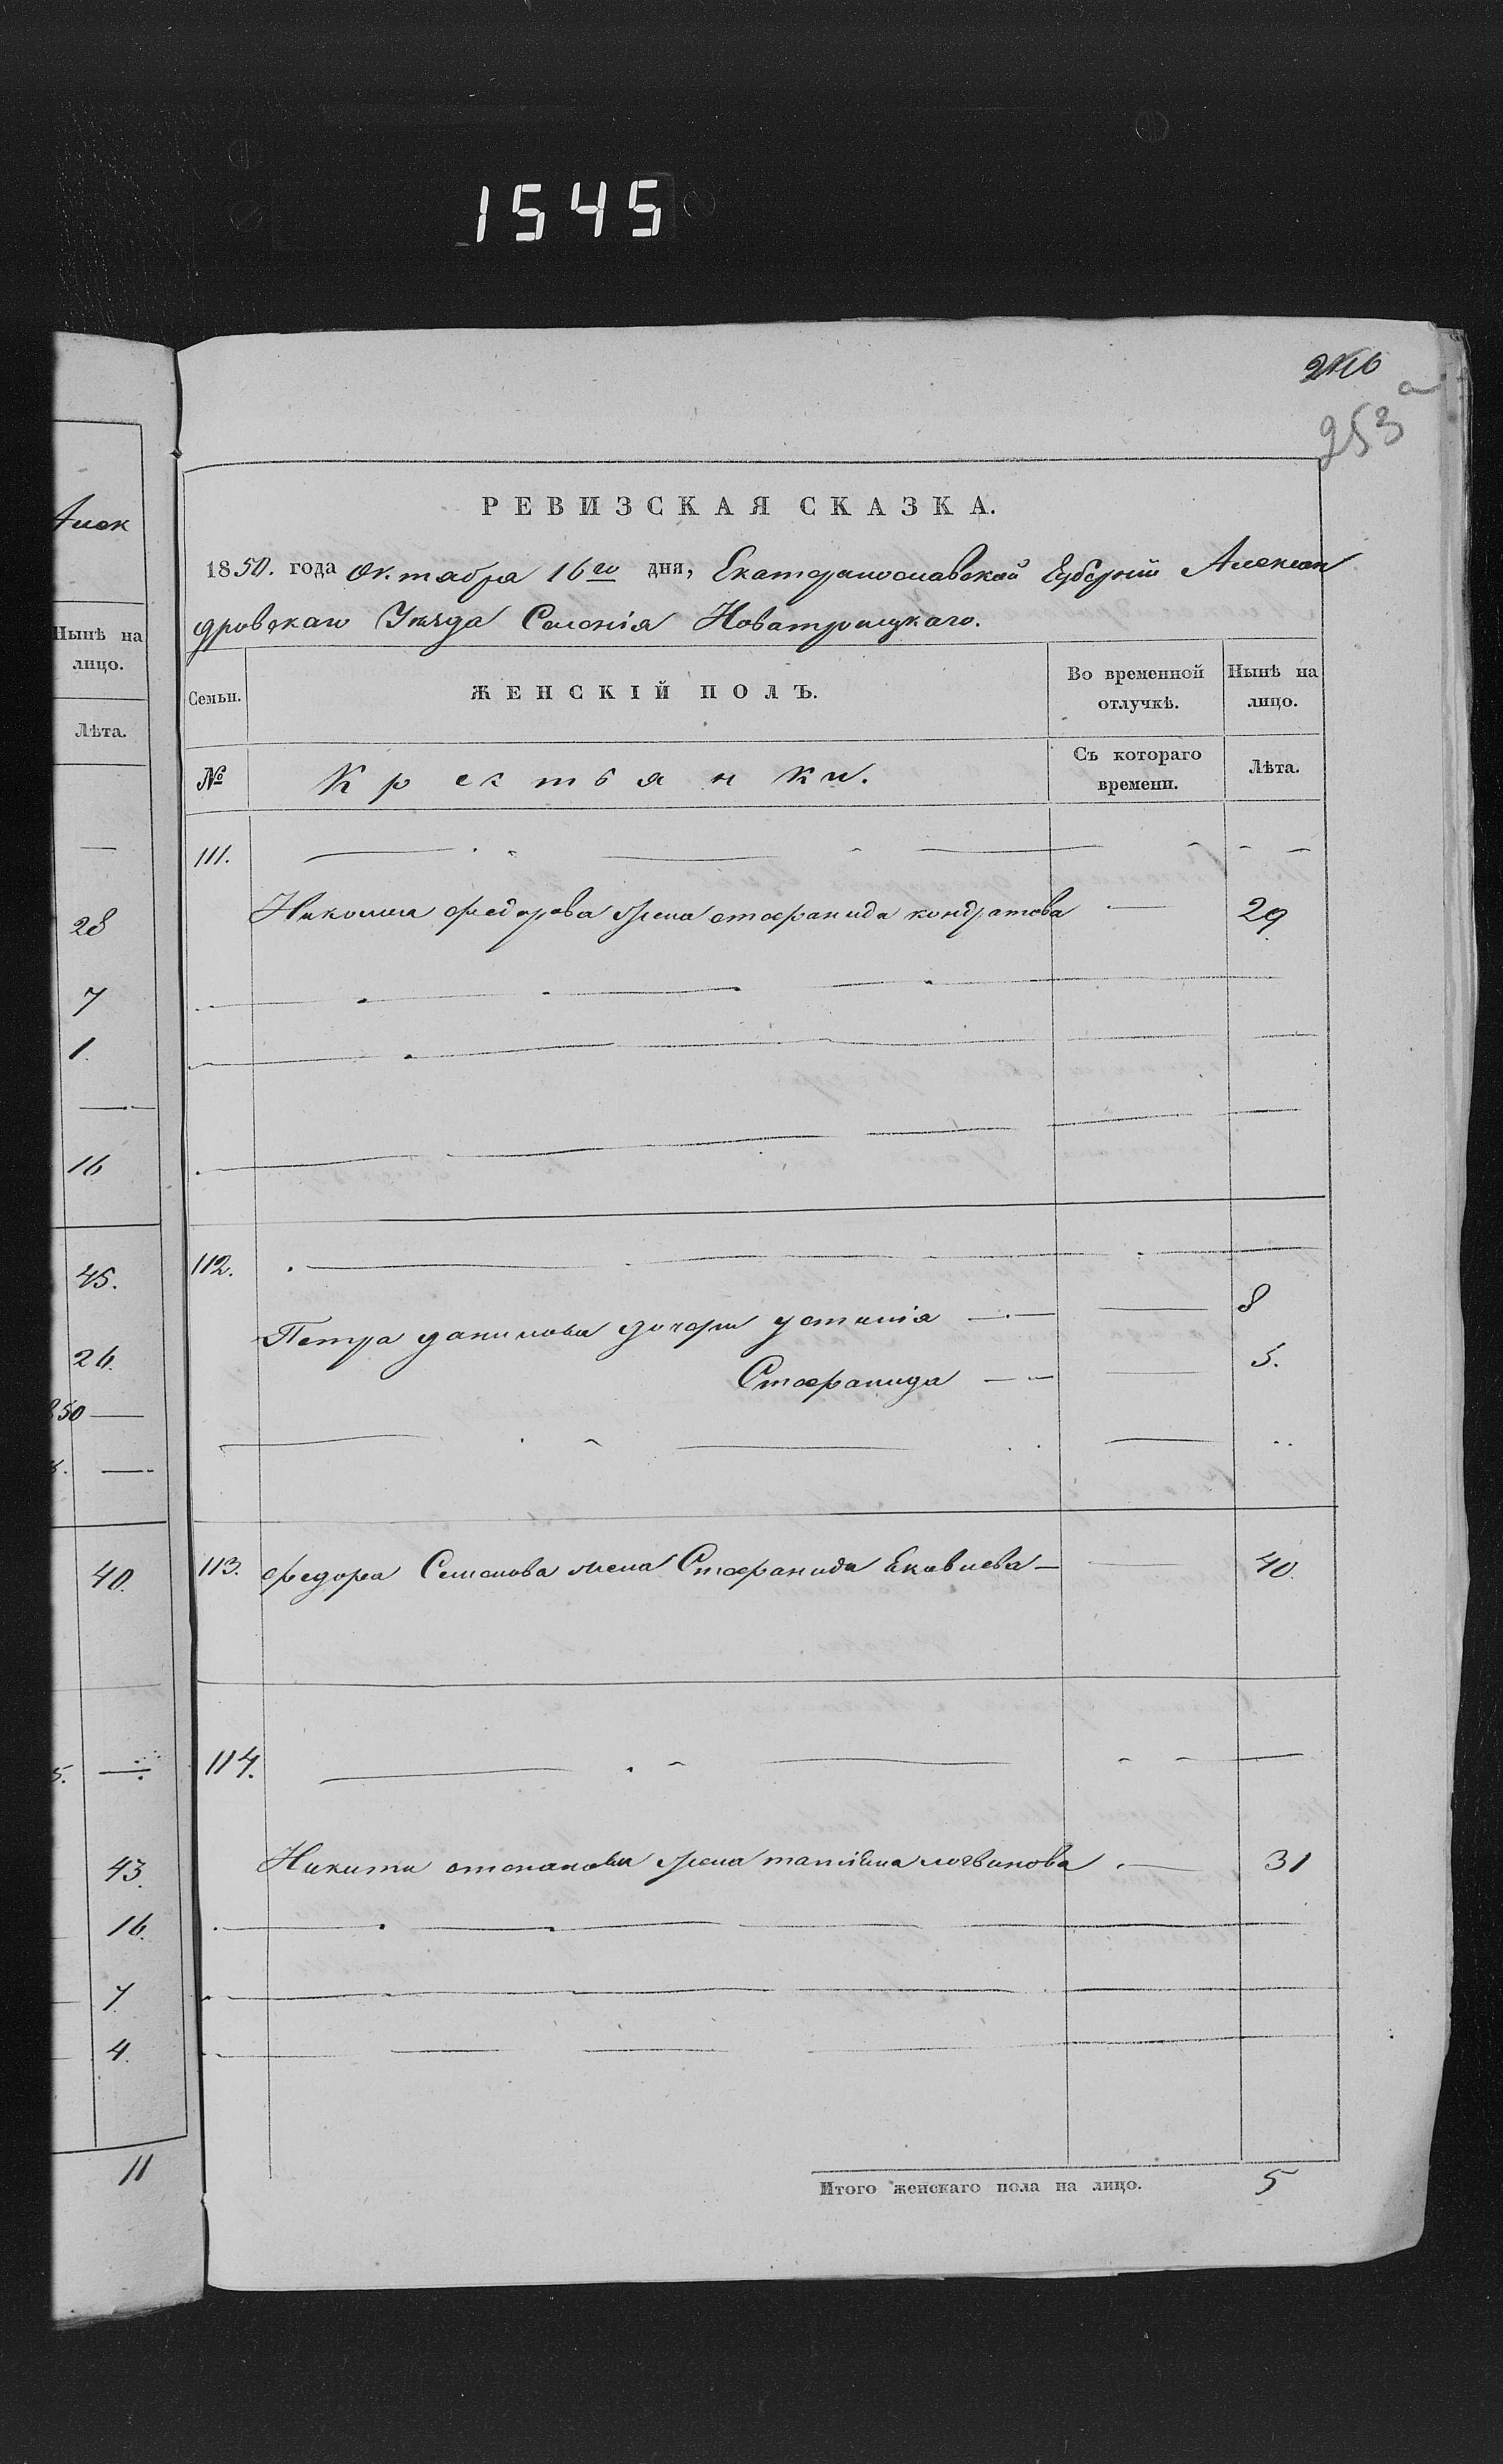 1545
253
Алек
Нынѣ на
лицо.
Лѣта.
—
28
7
1.
—
16
45.
26.
850 —
—
40.
5. —
43.
16.
7.
4.
11
РЕВИЗСКАЯ СКАЗКА.
1850. года Октября 16го дня, Екатеринославской Губерніи Алексан
дровскаго Уѣзда Селенія Новатроицкаго.
Семьи. ЖЕНСКІЙ ПОЛЪ. Во временной отлучкѣ. Нынѣ на лицо.
№ Крестьянки. Съ котораго времени. Лѣта.
111.
Николая федорова жена стефанида кондратова — 29.
112.
Петра данилова дочери устинія — 8
Стефанида — 5.
113. федора Семенова жена Стефанида Яковлева — 40.
114.
Никиты степанова жена татіяна логвинова — 31
Итого женскаго пола на лицо. 5